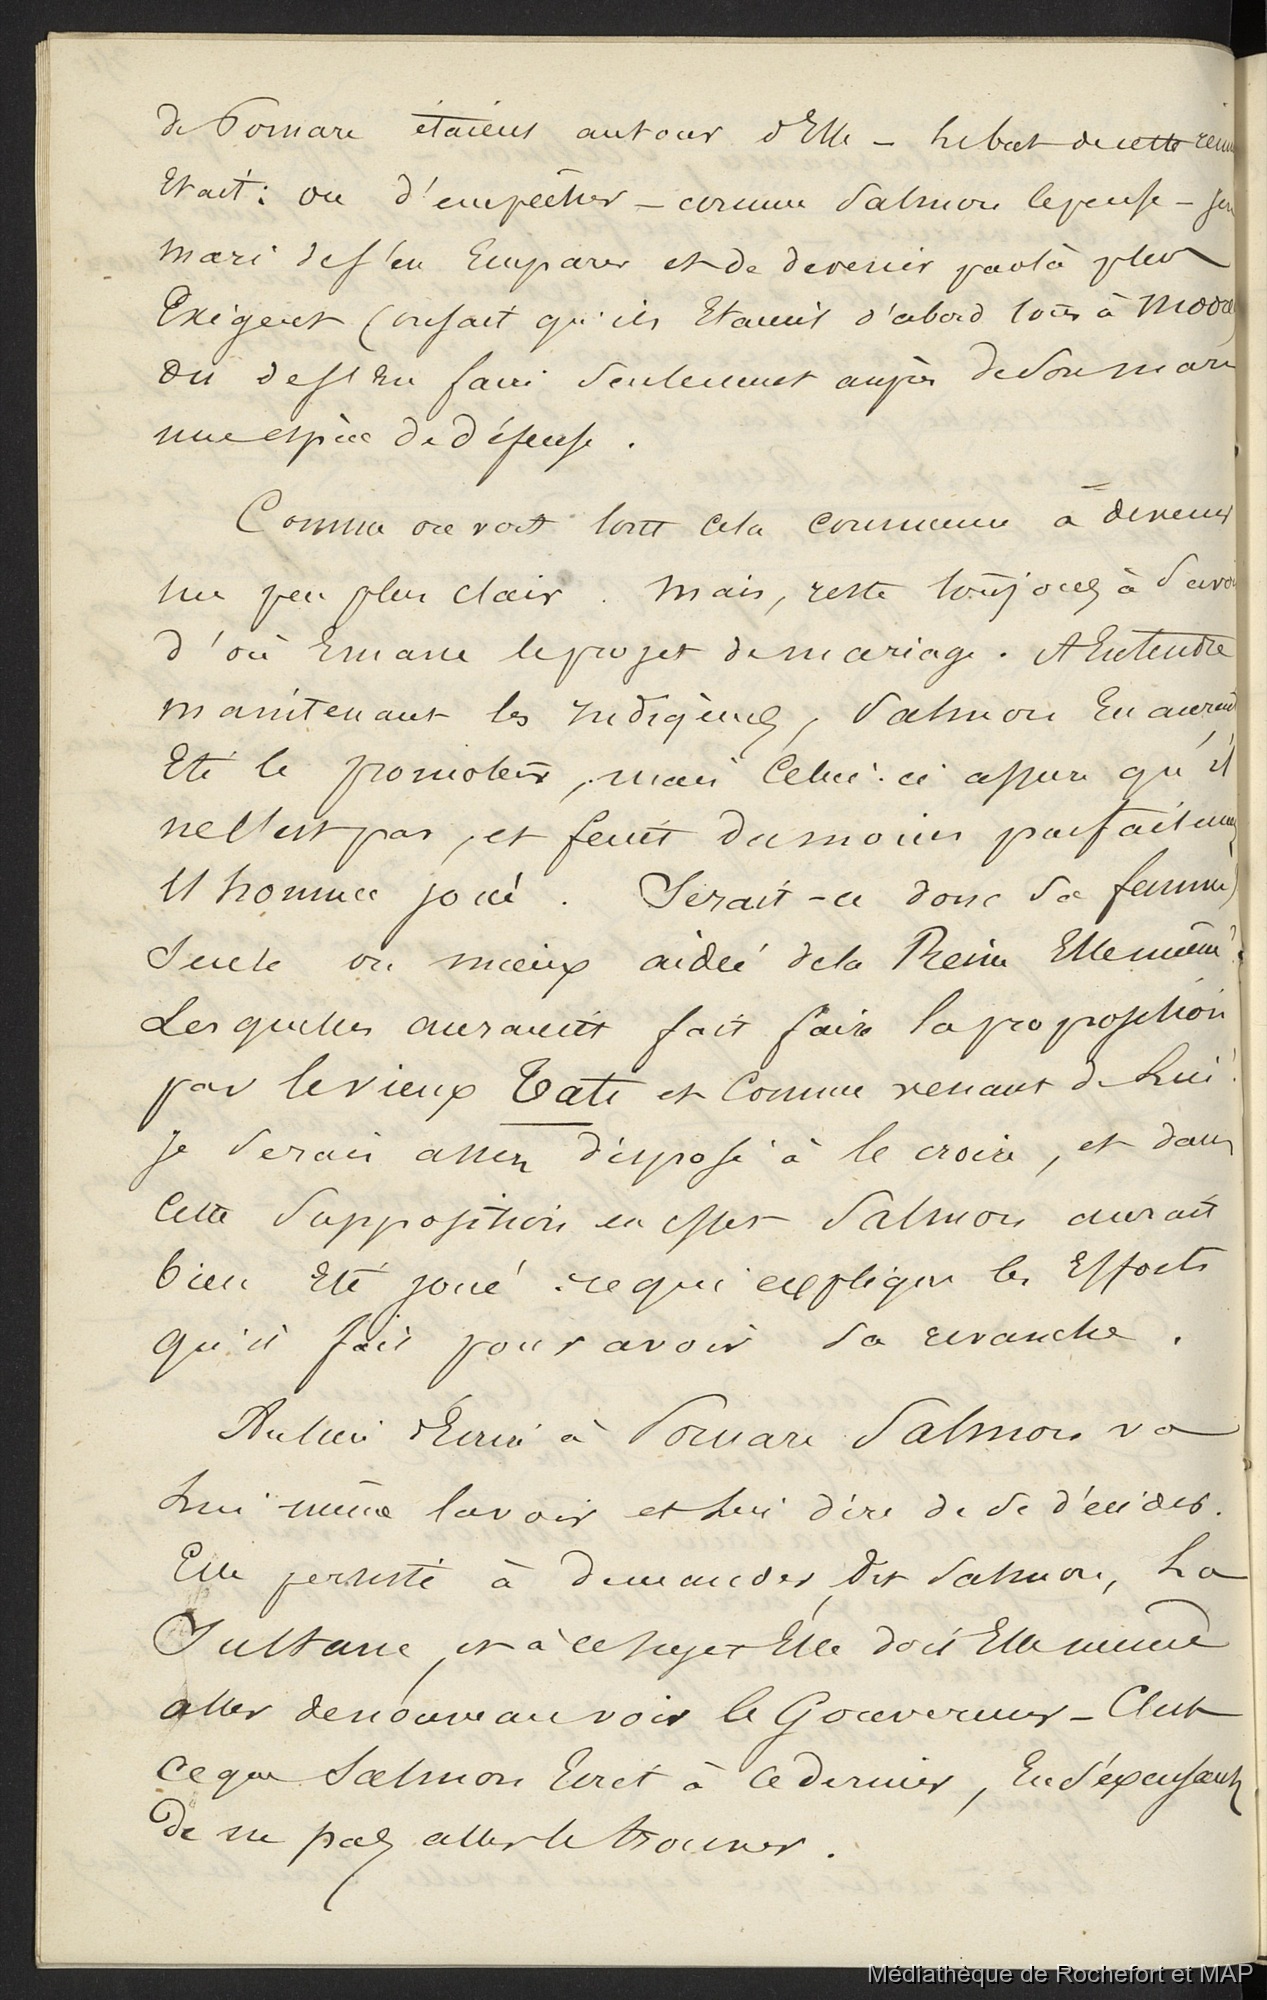 de Pomare étaient autour d'Elle – Le but de cette réunion
Etait: ou d'empêcher – comme Salmon le pense – son
mari de s'en Emparer et de devenir par là plus
Exigeant (on sait qu'ils Etaient d'abord tous à Moorea)
ou de s'en faire seulement auprès de son mari
une espèce de défense.
Comme on voit tout cela commence à devenir
un peu plus clair. Mais, reste toujours à savoir
d'où Emane le projet de mariage. A Entendre
maintenant les Indigènes, Salmon En aurait
Eté le promoteur, mais Celui-ci assure qu'il
ne l'est pas, et serait du moins parfaitement
l'homme joué. Serait-ce donc sa femme
seule ou mieux aidée de la Reine Elle même
Lesquelles auraient fait faire la proposition
par le vieux Tati et comme venant de Lui!
je serais assez disposé à le croire, et dans
cette supposition en effet Salmon aurait
bien Eté joué: ce qui explique les Efforts
qu'il fait pour avoir sa revanche.
Au lieu d'Ecrire à Pomare Salmon va
Lui même la voir et Lui dire de se décider.
Elle persiste à demander, dit Salmon, La
Sultane, et à ce sujet Elle doit Elle même
aller de nouveau voir le Gouverneur – C'est
ce que Salmon Ecrit à ce dernier, En s'excusant
de ne pas aller le trouver.
Médiathèque de Rochefort et MAP